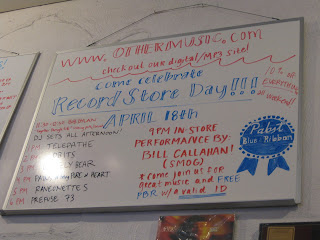 WWW.OTHERMUSIC.COM
checkout our digital/Mp3 site!
come celebrate
Record Store Day!!!
10% off
EVERYTHING
all weekend!
APRIL 18th
DJ SETS ALL AFTERNOON!
PM TELEPATHE
PM
PM BEAR
PM PURE HEART
5 PM
PM PREFUSE 73
9PM IN-STORE
PERFORMANCE BY:
BILL CALLAHAN!
(SMOG)
come join us for
great music and FREE
PBR w/a valid ID
Pabst
Blue Ribbon